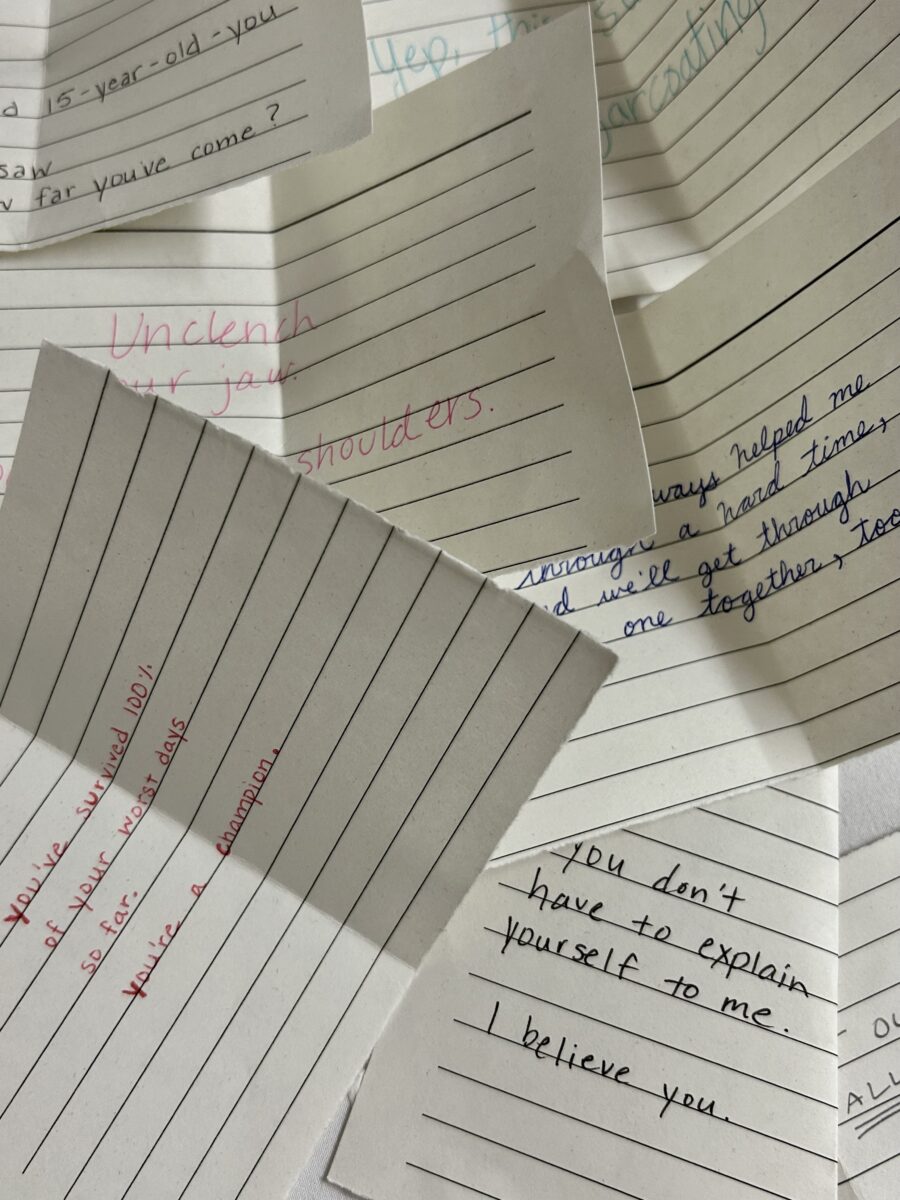 15-year-old-you
saw
far you've come?
Yep, this
garcoating
Unclench
our jaw.
shoulders.
ways helped me
through a hard time,
d we'll get through
one together, too
You've survived 100%
of your worst days
so far.
You're a champion.
you don't
have to explain
yourself to me.
I believe you.
OU
ALL